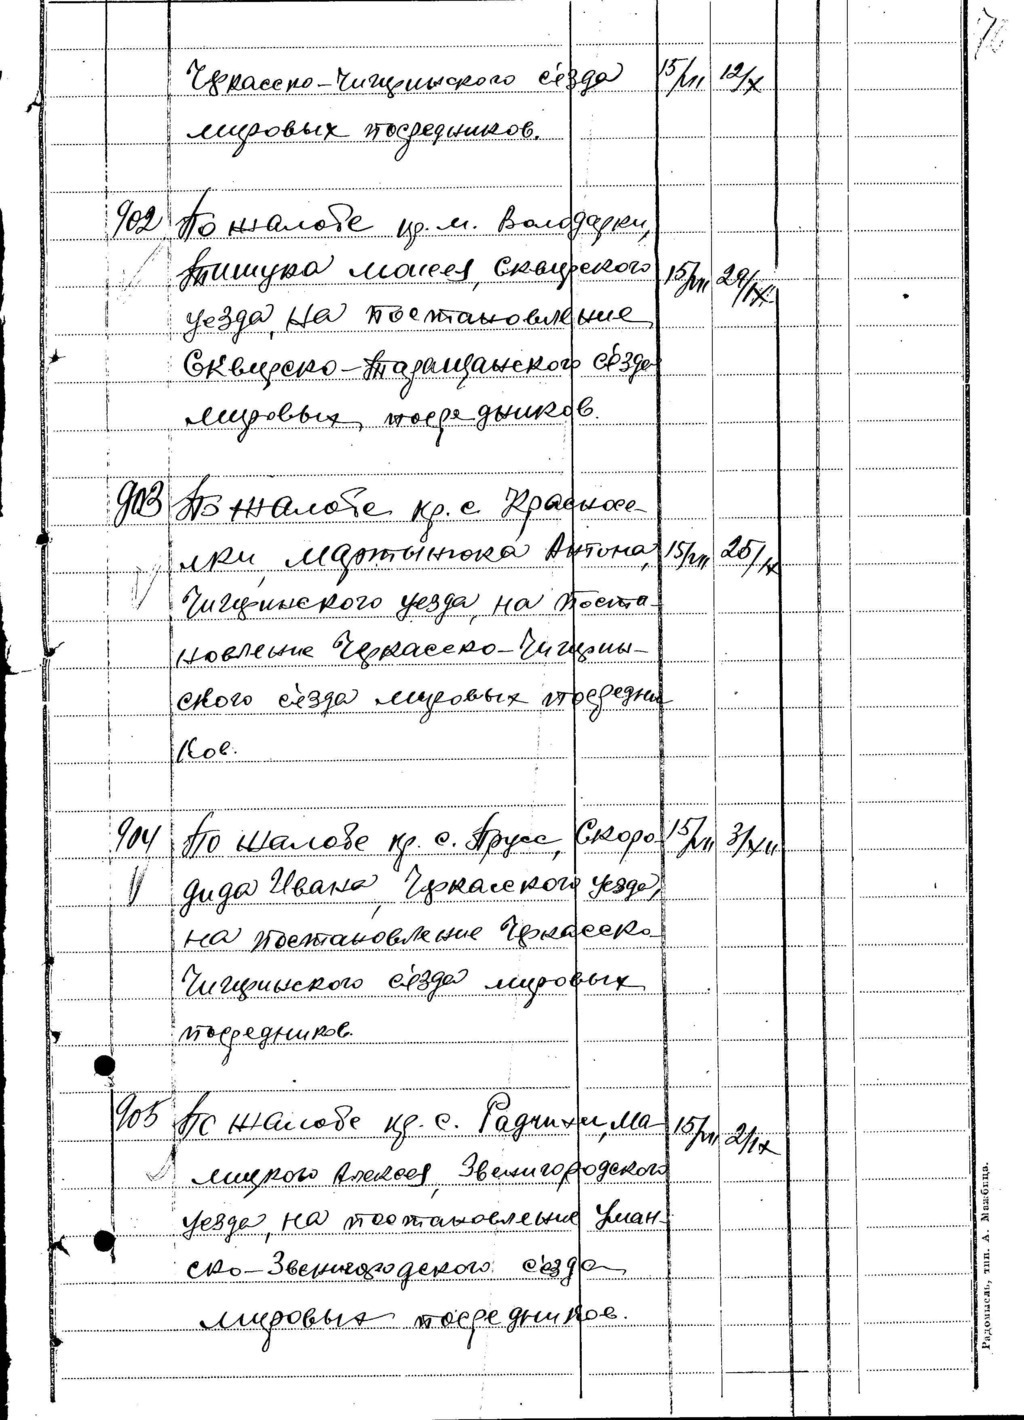 76
Черкасско-Чигиринского съезда 15/VII 12/X
мировых посредников.
902 По жалобе кр. м. Володарки,
Тищука Моисея, Сквирского 15/VII 29/IX
уезда, на постановление
Сквирско-Таращанского съезда
мировых посредников.
903 По жалобе кр. с. Красносе-
лки, Мартынюка Антона, 15/VII 25/IX
Чигиринского уезда, на поста-
новление Черкасско-Чигирин-
ского съезда мировых посредни
ков.
904 По жалобе кр. с. Прусс, Скоро- 15/VII 3/XII
дида Ивана, Черкасского уезда,
на постановление Черкасско-
Чигиринского съезда мировых
посредников.
905 По жалобе кр. с. Радчихи, Ма- 15/VII 2/IX
лицкого Алексея, Звенигородского
уезда, на постановление Уман-
ско-Звенигородского съезда
мировых посредников.
Радомысль, тип. А. Мажбица.